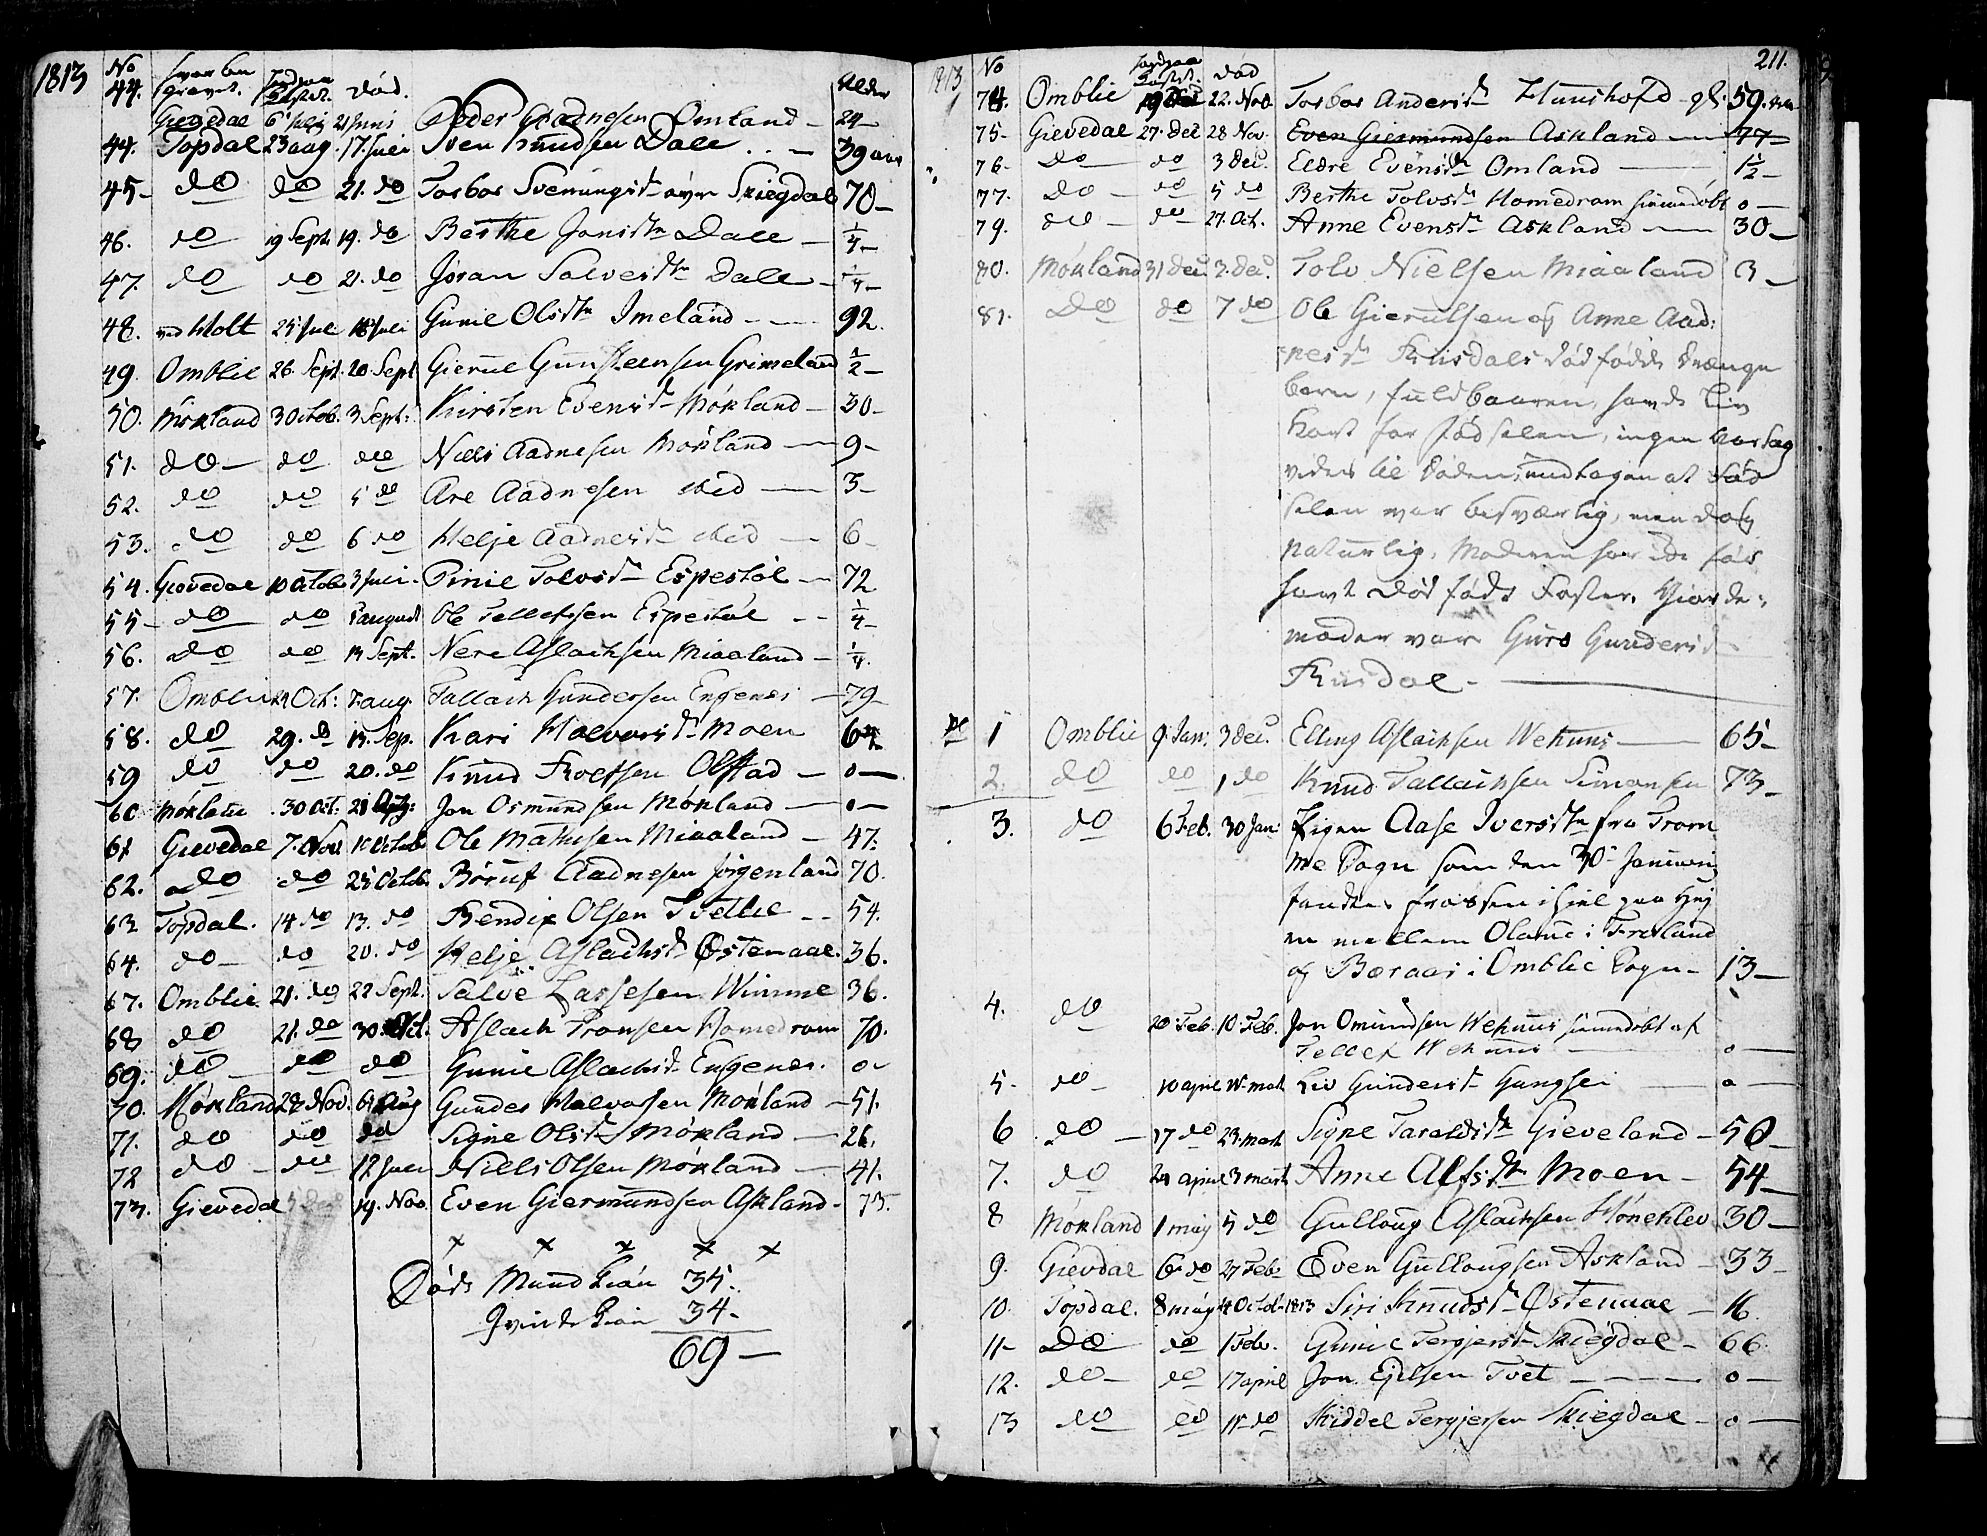 1813
No hvor be gravet. Jordpaa kastet. Død. Alder
44. Gievedal 6 Julij 21 Juni Peder Aadnesen Omland — 24
44. Topdal 23 aug. 17. Juli Sven Knudsen Dale — 39 aar
45 — do do 21. do Torbor Svenungsdtr øvre Skiegdal 70 —
46. do 19 Sept. 19. do Berthe Jonsdtr Dale — 1/4 —
47. do do 21. do Joran Salvesdtr Dale — 1/4 —
48. ved Holt 25 Jul 18 Juli Gunie Olsdtr Imeland — 92.
49. Omblie 26. Sept. 20 Sept Gierue Gunsteensen Grimeland 1/2 —
50. Mørland 3 Octob. 3 Sept. Kirsten Evensdtr Mørland — 30 —
51. do — do do Niels Aadnesen Mørland — 9 —
52. do do 5 do Are Aadnesen ibid — 3 —
53. do do 6 do Helje Aadnesdtr ibid — 6 —
54. Giøvedal 10 Octob. 3 Juli. Pinie Tolvsdtr Espestøl — 72
55 — do do august Ole Tellefssen Espestøl — 1/4 —
56. do do 13 Sept. Nere Aslachsen Miaaland — 1/4.
57. Omblie 29 Oct: aug. Tallach Gundersen Engenes — 79 —
58. do 29. do 13. Sep. Kari Halvorsdtr Moen 64
59 do do 20. do Knud Olstad — 0 —
60 Mørland 30 Oct. 21 Jon Osmundsen Mørland — 0 —
61 Gievedal 7. Nov 10 Octob Ole Mathisen Miaaland — 47.
62. do do 25 Octob. Børuf Aadnesen Jørgenland 70.
63 Topdal. 14 do 13. do Bendix Olsen Tvetlie — 54.
64. do — do 20. do Helje Aslachsdtr Østenaae. 36.
67. Omblie 21. do 22 Sept. Salve Lassesen Wimme 36.
68 do 21. do 30. Oct. Aslach Homedrom 70.
69. do — do do Gunie Aslachsdtr Engenes. 0 —
70. Mørland 28 Nov. 6 Aug Gunder Halvorsen Mørland — 51.
71. do do do Signe Olsdtr Mørland — 26.
72 do — do 12 Juli Niels Olsen Mørland — 41.
73. Gievedal 19. Nov. Even Giermundsen Askland — 73.
× × × × ×
Døde Mandkiøn 35.
Qvindekiøn 34 —
69 —
211.
1813
No Jordpaa kastet. død
74. Omblie 19 Dec 22. Nov. Torbor Andersdtr Hunshofd 59. aar
75 — Gievedal 27. Dec 28 Nov. Even Giermundsen Askland — 77 —
76 — do do 3 Dec. Eldre Evensdtr Omland — 1/2 —
77. do — do 5 do Berthe Tolvsdtr Homedrom hiemdøbt 0 —
79. do — do 27. Oct. Anne Evensdtr Askland — 30 —
80. Mørland 31 Dec. 3. Dec. Tolv Nielsen Miaaland 3 —
81. do do 7 do Ole Gierulsen og Anne Aad:
nesdtr dødfødde Drænge
barn, fuldbaaren, havde Liv
kort før fødselen, ingen aarsag
vides til Døden, undtagen at Fød
selen var besværlig, men dog
naturlig. Moderen har før
havt død født Foster. Giorde:
moder var Guro Gundersdtr
1 Omblie 9. Jan. 3 Dec. Elling Aslachsen Wehuus — 65 —
2. do do 1 do Knud Tallachsen Simonsen 73 —
3. do 6 Feb. 30 Jan: Pigen Aase Iversdtr fra Trom
me Sogn som den 30te Januarij
fandtes frossen ihiel paa Hej
en mellem i Froland
og Beraas i Omblie Sogn — 13 —
4. do 20. Feb. 10 Feb. Jon Omundsen Wehuus hiemdøbt af
Tellef Wehuus — 0 —
5 — do — 10 april mart Liv Gundersdtr Gangsei 0 —
6 do — 17 do 23. mart Signe Taraldsdtr Gieveland — 50 —
7. do 24 april 3 mart Anne Alfsdtr Moen — 54 —
8 Mørland 1 maj 5 do Gulloug Aslachsen Hønekleo 30 —
9. Gievdal 6 do 27 Feb. Even Gullougsen Askland — 33 —
10. Topdal. 8 maj 14 Octob 1813 Siri Knudsdtr Østenaae — 16
11 — do do 1 Feb. Gunie Tergjersdtr Skiegdal — 66
12. do — do 17 april Jon Ejelsen Tvet — 0 —
13 do do do Skiddel Tergjersen Skiegdal — 0 —